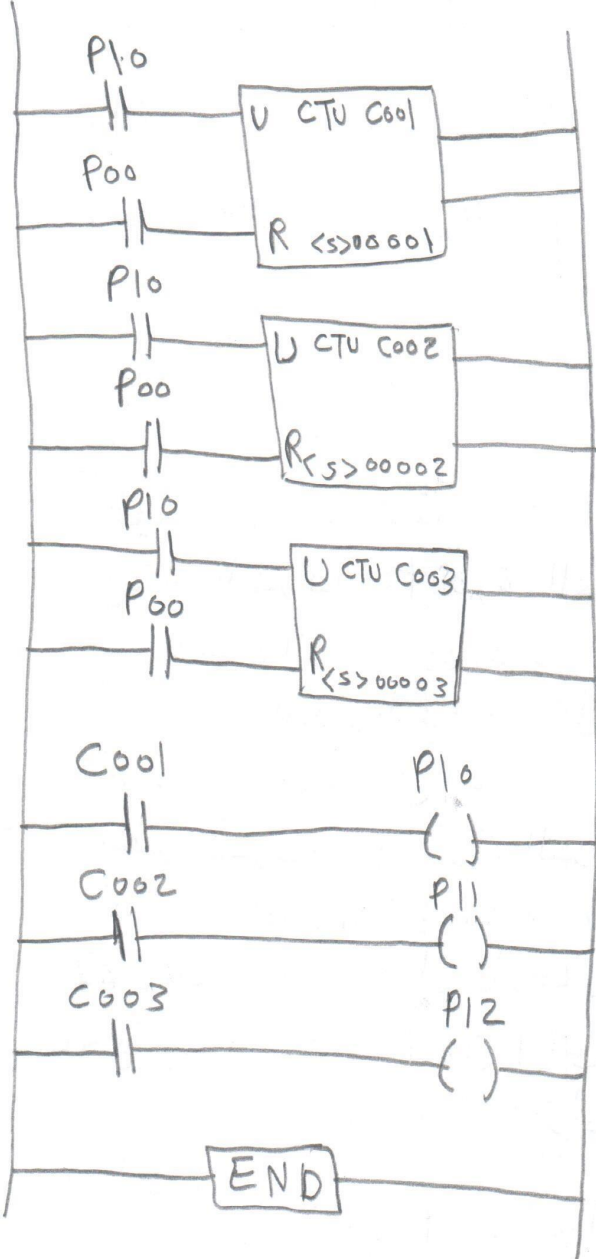 P10
U CTU C001
P00
R <S>00001
P10
U CTU C002
P00
R <S>00002
P10
U CTU C003
P00
R <S>00003
C001 P10
C002 P11
C003 P12
END